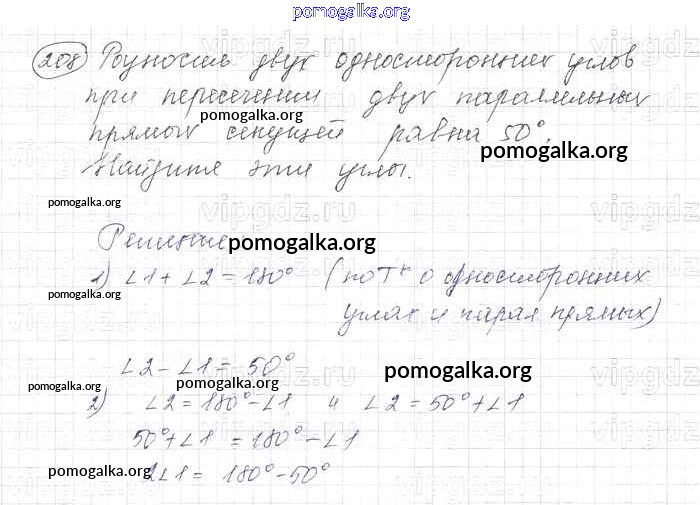 pomogalka.org
208 Разность двух односторонних углов
при пересечении двух параллельных
pomogalka.org
прямых секущей равна 50°.
pomogalka.org
Найдите эти углы.
pomogalka.org
Решение
pomogalka.org
1) ∠1 + ∠2 = 180° (по Т о односторонних
pomogalka.org
углах и парал прямых)
∠2 - ∠1 = 50°
pomogalka.org
pomogalka.org
pomogalka.org
2) ∠2 = 180° - ∠1 и ∠2 = 50° + ∠1
50° + ∠1 = 180° - ∠1
pomogalka.org
2∠1 = 180° - 50°